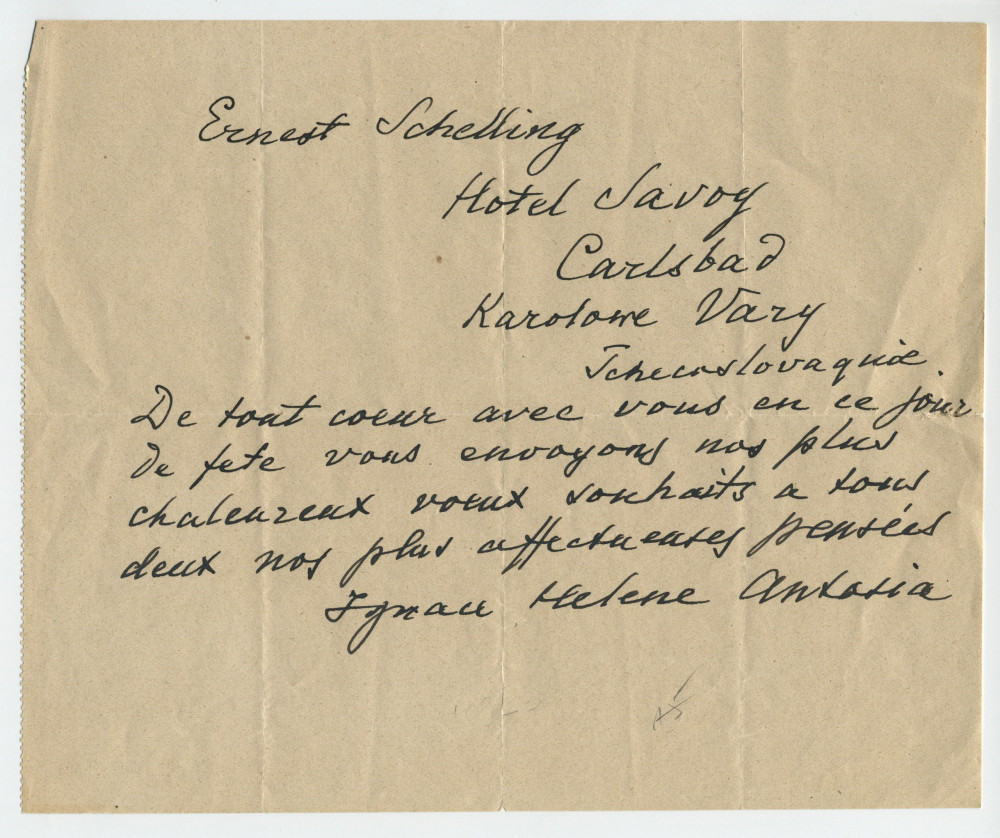 Ernest Schelling
Hotel Savoy
Carlsbad
Karolowe Vary
Tchecoslovaquie.
De tout coeur avec vous en ce jour
de fete vous envoyons nos plus
chaleureux voeux souhaits a tous
deux nos plus affectueuses pensées
Ignace Helene Antosia